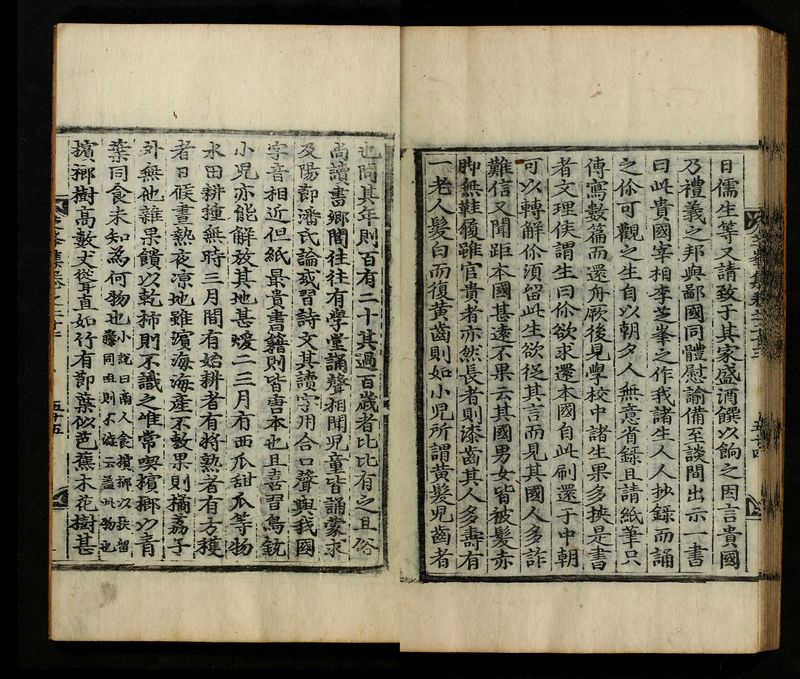 日儒生等又請致于其家盛酒饌以餉之因言貴國
乃禮義之邦與鄙國同體慰諭備至談間出示一書
曰此貴國宰相李芝峯之作我諸生人人抄錄而誦
之你可觀之生自以朝夕人無意省錄且請紙筆只
傳寫數篇而還舟厥後見學校中諸生果多挾是書
者文理侠謂生曰你欲求還本國自此刷還于中朝
可以轉解你須留此生欲從其言而見其國人多詐
難信又聞距本國甚遠不果云其國男女皆被髮赤
脚無鞋韈雖官貴者亦然長者則漆齒其人多壽有
一老人髮白而復黃齒則如小兒所謂黃髮兒齒者
也問其年則百有二十其過百歲者比比有之且俗
尚讀書鄉閭往往有學堂誦聲相聞兒童皆誦蒙求
及陽節潘氏論或習詩文其讀字用合口聲與我國
字音相近但紙最貴書籍則皆唐本也且喜習鳥銃
小兒亦能解放其地甚煖二三月有西瓜甜瓜等物
水田耕種無時三月間有始耕者有將熟者有方穫
者日候晝熱夜凉地雖濱海海產不敷果則橘荔子
外無他雜果饋以乾柿則不識之唯常喫檳榔以青
葉同食未知為何物也小說曰南人食檳榔以扶留藤同咀則不澁云盖此物也
檳榔樹高數丈從耳直如竹有節葉似芭蕉木花樹甚
芝峯集卷之二十三
五十四
五十五